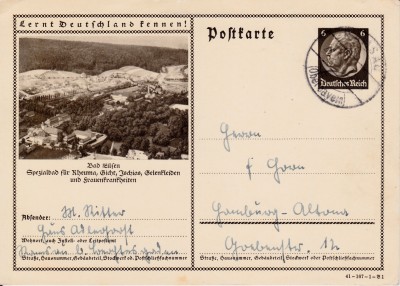 Lernt Deutschland kennen!
Postkarte
6 6
Deutsches Reich
Bad Eilsen
Spezialbad für Rheuma, Gicht, Ischias, Gelenkleiden
und Frauenkrankheiten
Absender: M. Ritter
Haus Adlerhorst
Wohnort, auch Zustell- oder Leitpostamt
Ramsau b. Berchtesgaden
Straße, Hausnummer, Gebäudeteil, Stockwerk od. Postschließfachnummer
Herrn
Horn
Hamburg-Altona
Straße, Hausnummer, Gebäudeteil, Stockwerk oder Postschließfachnummer
41-187-1-B1